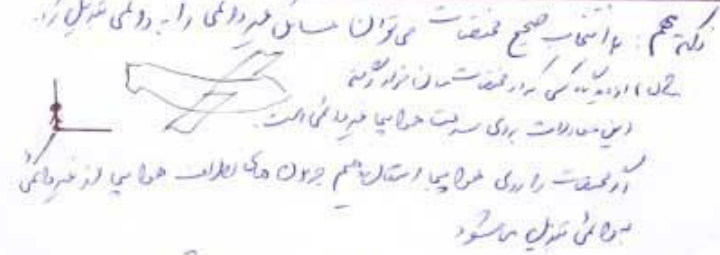 نکته مهم: با انتخاب صحیح مختصات می‌توان مسائل غیردائمی را به دائمی تبدیل کرد.
مثال: از دیدگاه کسی که در مختصات قرار گرفته
این معادلات برای سرعت هواپیما غیردائمی است.
اگر مختصات را روی هواپیما انتقال دهیم جریان های اطراف هواپیما از غیردائمی
به دائمی تبدیل می‌شود